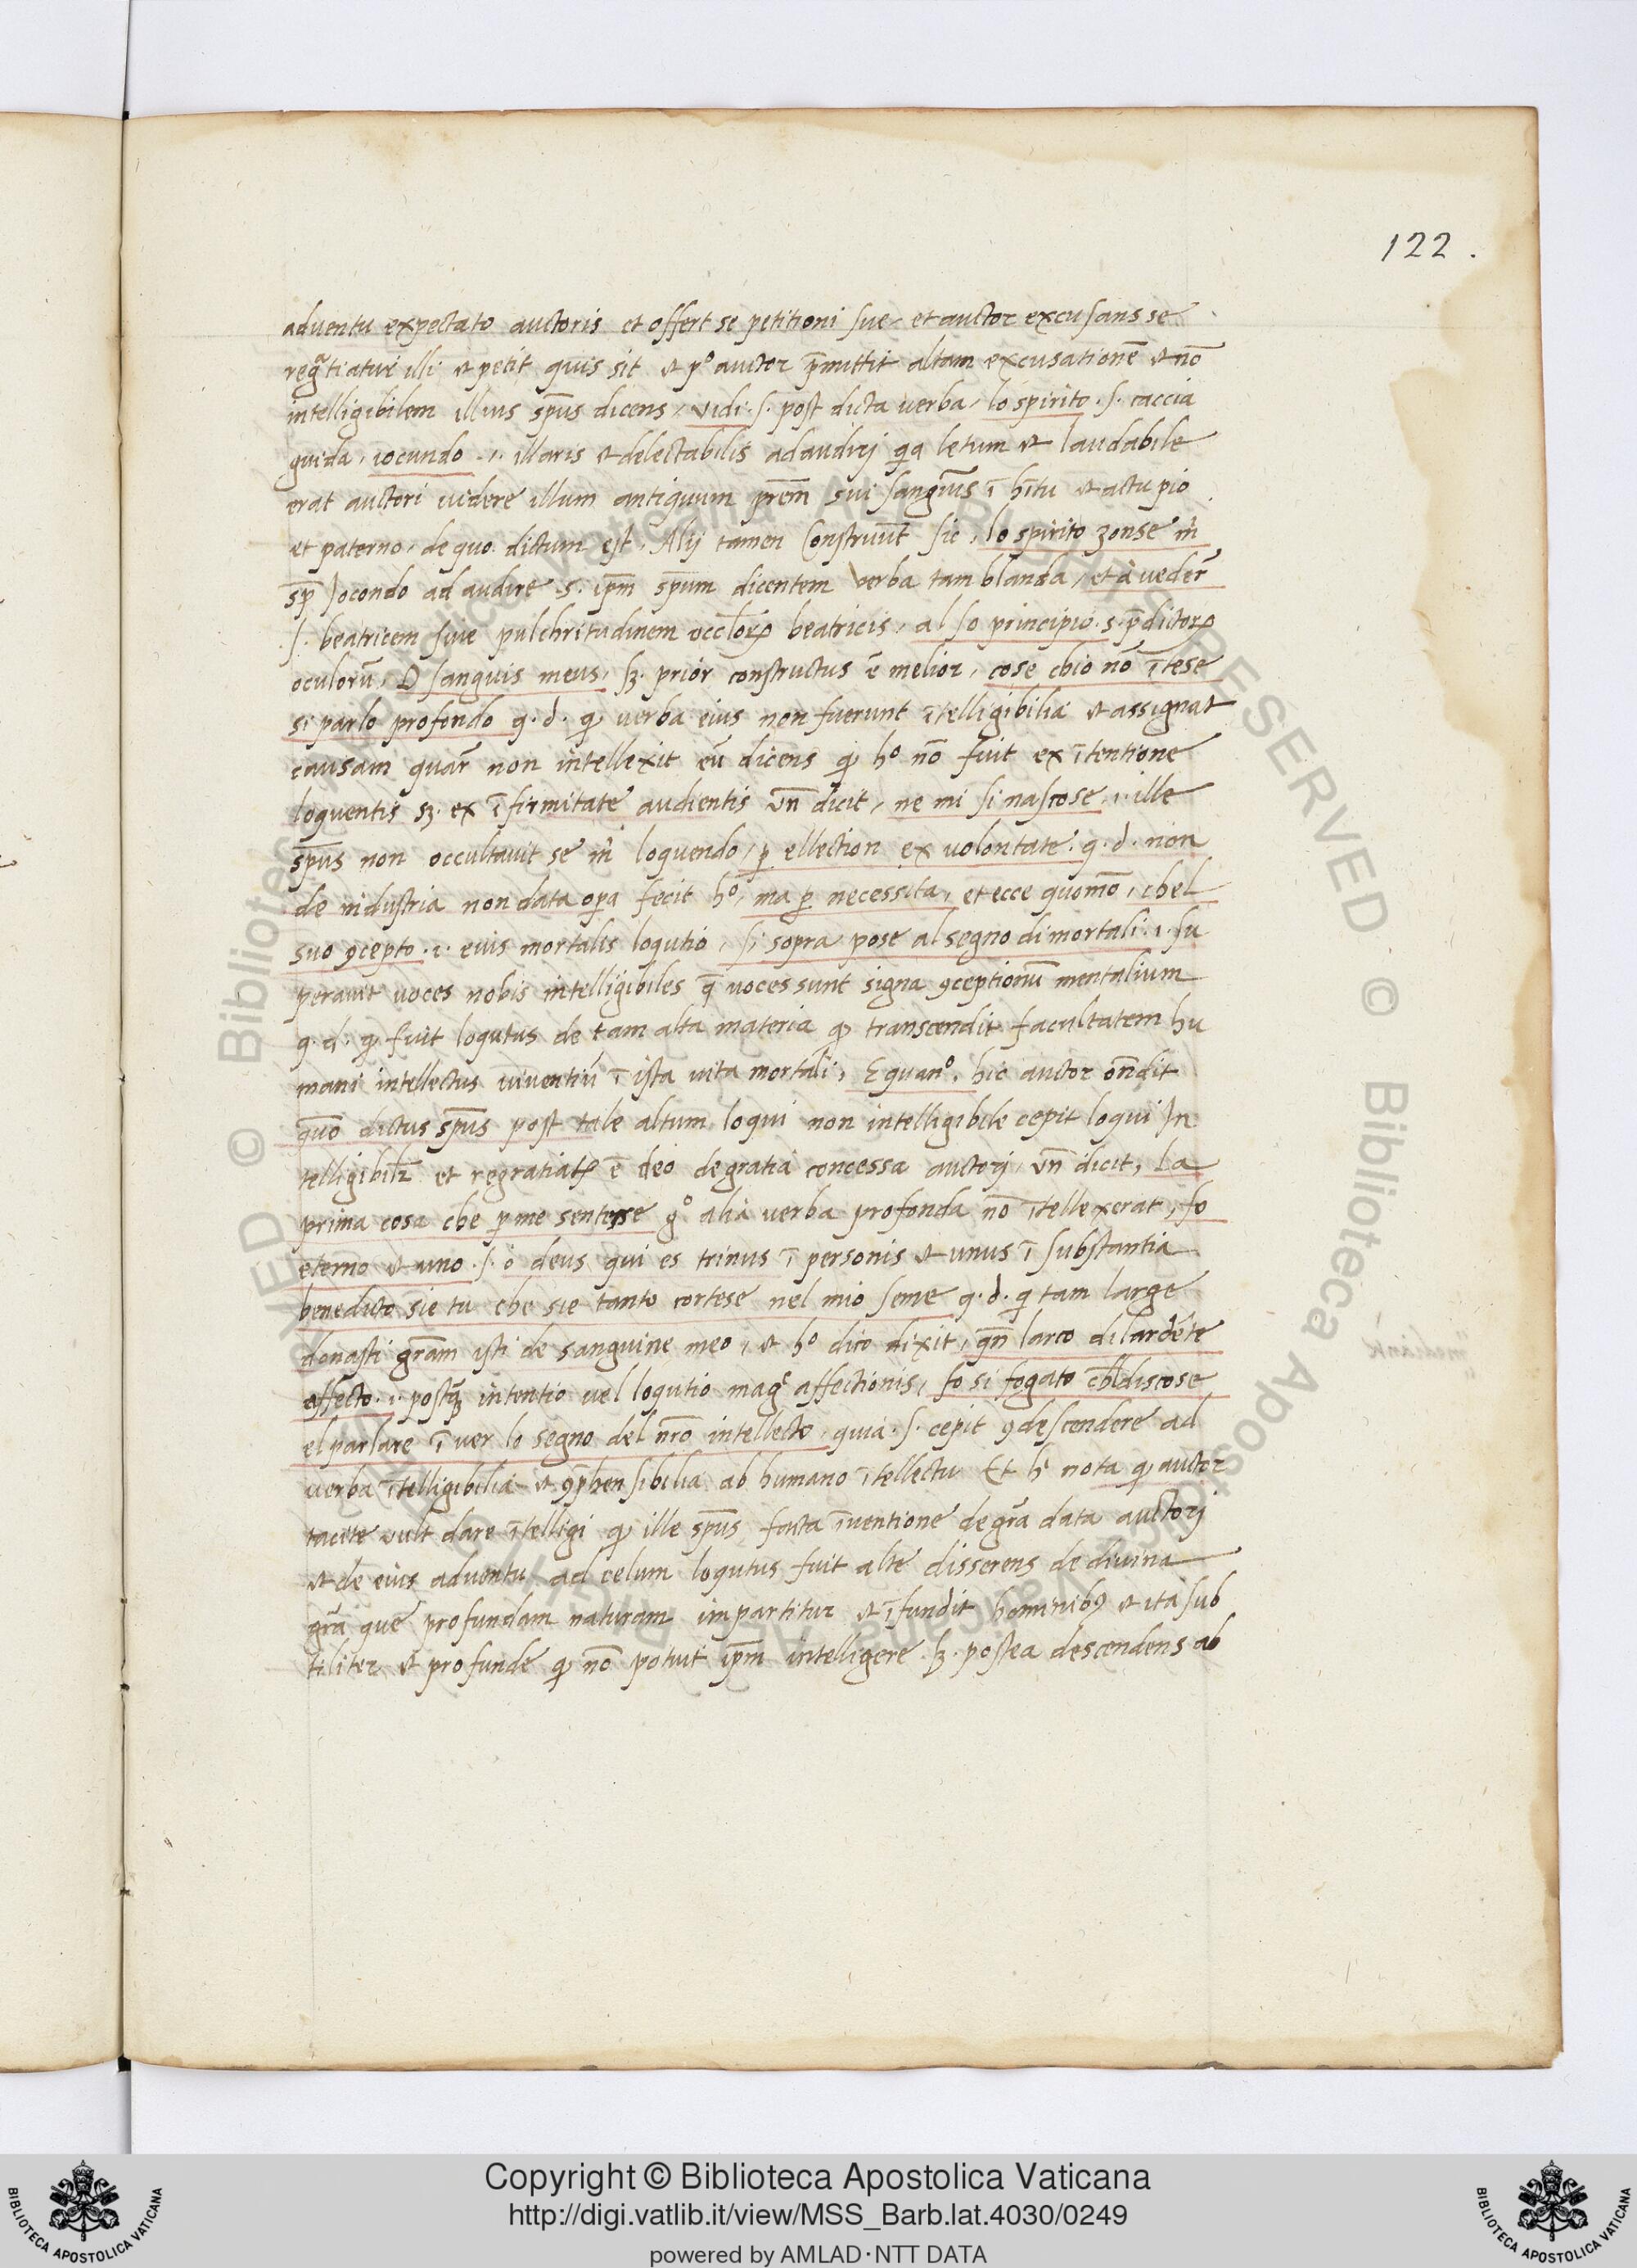 122.
adventu expectato auctoris et offert se petitioni sue et auctor excusans se
regr̃atiatur illi et petit quis sit et pº auctor p̃mittit altam excusationẽ et nõ
intelligibilem illius sp̃us dicens, vidi .s. post dicta verba, lo spirito .s. caccia
guida, iocundo .i. illaris et delectabilis ad audirj q̃a letum et laudabile
erat auctori videre illum antiquum pr̃em sui sanguĩs ĩ h̃itu et actu pio
et paterno, de quo dictum est. Alij tamen Construũt sic, lo spirito zonse in
sp̃ Jocondo ad audire .s. ip̃m sp̃um dicentem verba tam blanda, et à vedeř
.s. beatricem sive pulchritudinem occlorꝝ beatricis, al so principio .s. p̃dictorꝝ
oculorũ, O sanguis meus, sꝫ. prior constructus ẽ melior, cose chio nõ ĩtese
si parlo profondo q.d. ꝙ verba eius non fuerunt ĩtelligibilia et assignat
causam quař non intellexit eũ dicens ꝙ hº nõ fuit ex ĩtentione
loquentis sꝫ. ex ĩfirmitate audientis uñ dicit, ne mi si nascose, .i. ille
sp̃us non occultavit se in loquendo, ꝑ ellection ex volontate. q.d. non
de industria non data oꝑa fecit hº, ma ꝑ necessita, et ecce quomõ, chel
suo ꝯcepto .i. euis mortalis loqutio, si sopra pose al segno di mortali .i. su
peravit voces nobis intelligibiles q̃ voces sunt signa ꝯceptionũ mentalium
q.d. ꝙ fuit loqutus de tam alta materia ꝙ transcendit facultatem hu
mani intellectus viventiũ ĩ ista vita mortali, E quanº. hic auctor oñdit
quõ dictus sp̃us post tale altum loqui non intelligibile cepit loqui In
telligibilꝫ et regratiatꝝ ẽ deo de gratia concessa auctorj, uñ dicit, La
prima cosa che ꝑ me sentesse gº alia verba profonda nõ ĩtellexerat, fo
eterno et uno .s. ò deus qui es trinus ĩ personis et unus ĩ substantia
benedicto sie tu che sie tanto cortese nel mio seme q.d. ꝙ tam large
donasti grãm isti de sanguine meo, et hº dico dixit, qñ larco dilardẽte
affecto .i. postq̃ꝫ intentio vel loqutio mag affectionis, fo si fogato chel discose
el parlare ĩ ver lo segno del nr̃o intellecto, quia .s. cepit ꝯdescendere ad
verba ĩtelligibilia et ꝯp̃hensibilia ab humano ĩtellectu Et h nota ꝙ auctor
tacite vult dare ĩtelligi ꝙ ille sp̃us facta ĩventione de grã data auctorj
et de eius adventu ad celum loqutus fuit alte disserens de divina
grã que profundam naturam impartitur et ĩfundit hominibꝯ et ita sub
tiliter et profunde ꝙ nõ potuit ip̃m intelligere sꝫ. postea descendens ab
© Biblioteca Apostolica Vaticana ALL RIGHTS RESERVED
Copyright © Biblioteca Apostolica Vaticana
http://digi.vatlib.it/view/MSS_Barb.lat.4030/0249
powered by AMLAD·NTT DATA
BIBLIOTECA APOSTOLICA VATICANA
BIBLIOTECA APOSTOLICA VATICANA